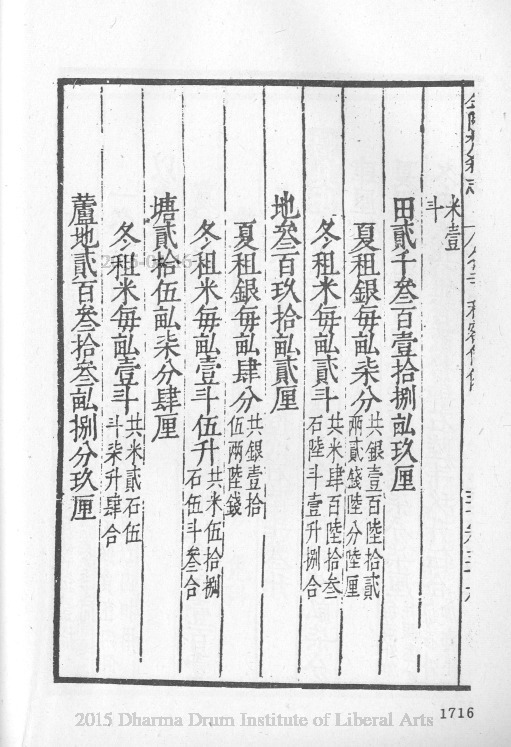 米壹
斗
田貳千叁百壹拾捌畝玖厘
夏租銀每畝柒分共銀壹百陸拾貳
兩貳錢陸分陸厘
冬租米每畝貳斗共米肆百陸拾叁
石陸斗壹升捌合
地叁百玖拾畝貳厘
夏租銀每畝肆分共銀壹拾
伍兩陸錢
冬租米每畝壹斗伍升共米伍拾捌
石伍斗叁合
塘貳拾伍畝柒分肆厘
冬租米每畝壹斗共米貳石伍
斗柒升肆合
蘆地貳百叁拾叁畝捌分玖厘
1716
2015 Dharma Drum Institute of Liberal Arts